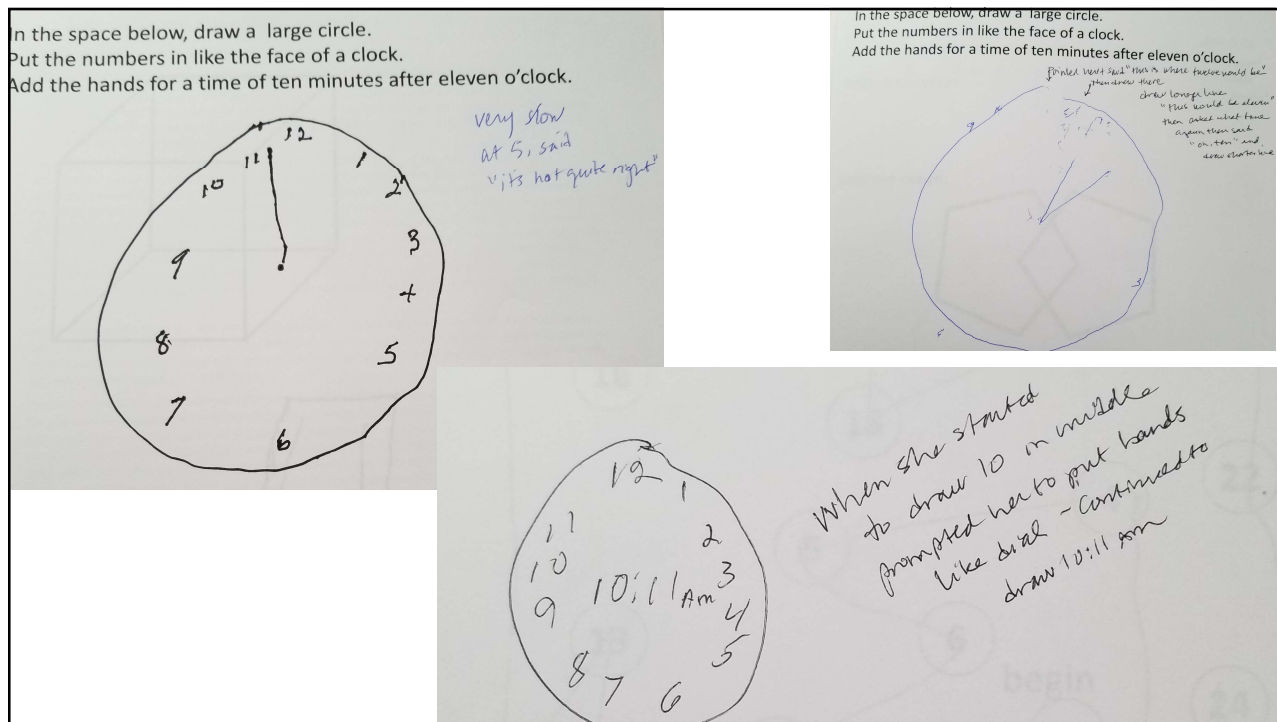 In the space below, draw a large circle.
Put the numbers in like the face of a clock.
Add the hands for a time of ten minutes after eleven o'clock.
very slow
at 5, said
"it's not quite right"
12
11
1
10
2
9
3
4
8
5
7
6
In the space below, draw a large circle.
Put the numbers in like the face of a clock.
Add the hands for a time of ten minutes after eleven o'clock.
pointed here + said "this is where twelve would be"
then drew there
draw longer line
"this would be eleven"
then asked what time
again then said
"oh, ten" and
drew shorter line
9
3
12
1
11
2
10
10:11 Am
3
9
4
5
8
7
6
When she started
to draw 10 in middle
prompted her to put hands
like dial - continued to
draw 10:11 Am
18
22
6
13
begin
24